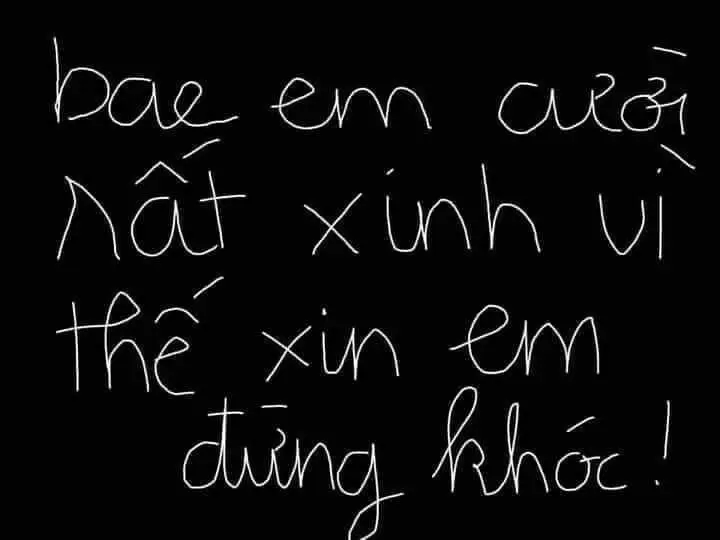 bae em cười
rất xinh vì
thế xin em
đừng khóc!